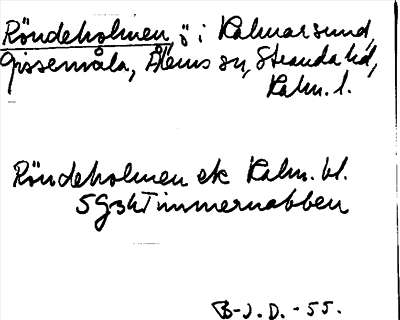 Röndeholmen, ö i Kalmarsund,
Gissemåla, Ålems sn, Stranda hd,
Kalm. l.
Röndeholmen ek Kalm. bl.
5G3h Timmernabben
B-J.D.-55.